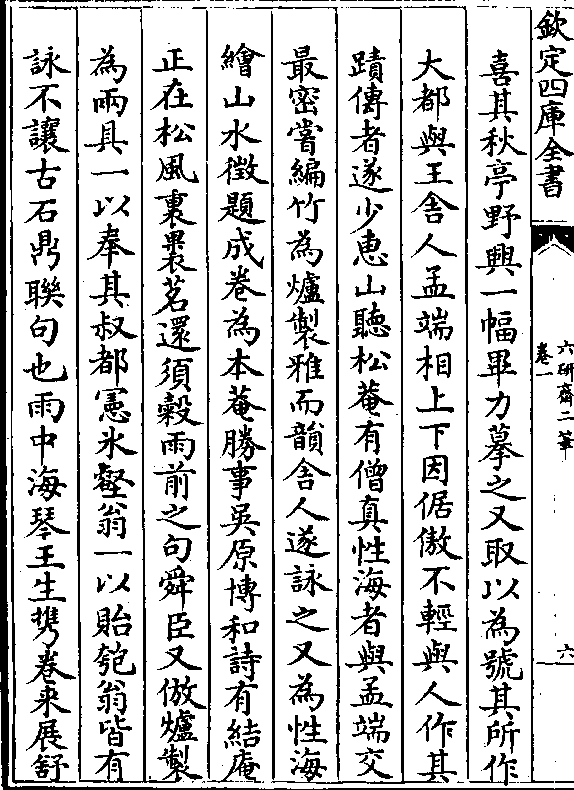 欽定四庫全書
六硏齋二筆
卷一
六
喜其秋亭野興一幅畢力摹之又取以為號其所作
大都與王舍人孟端相上下因倨傲不輕與人作其
蹟傳者遂少惠山聽松菴有僧真性海者與孟端交
最密嘗編竹為爐製雅而韻舍人遂詠之又為性海
繪山水徵題成卷為本菴勝事吳原博和詩有結庵
正在松風裏裹茗還須穀雨前之句舜臣又倣爐製
為兩具一以奉其叔都憲氷壑翁一以貽匏翁皆有
詠不讓古石鼎聯句也雨中海琴王生携卷来展舒